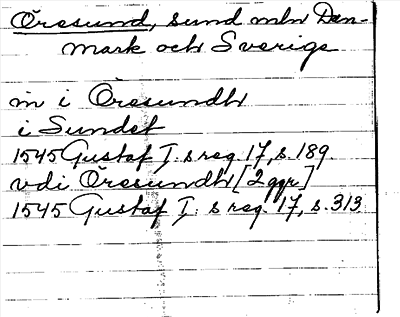 Öresund, sund mln Dan-
mark och Sverige
in i Öresundh
i Sundet
1545 Gustaf I:s reg. 17, s. 189
vdi Öresundh [2 ggr]
1545 Gustaf I:s reg. 17, s. 313